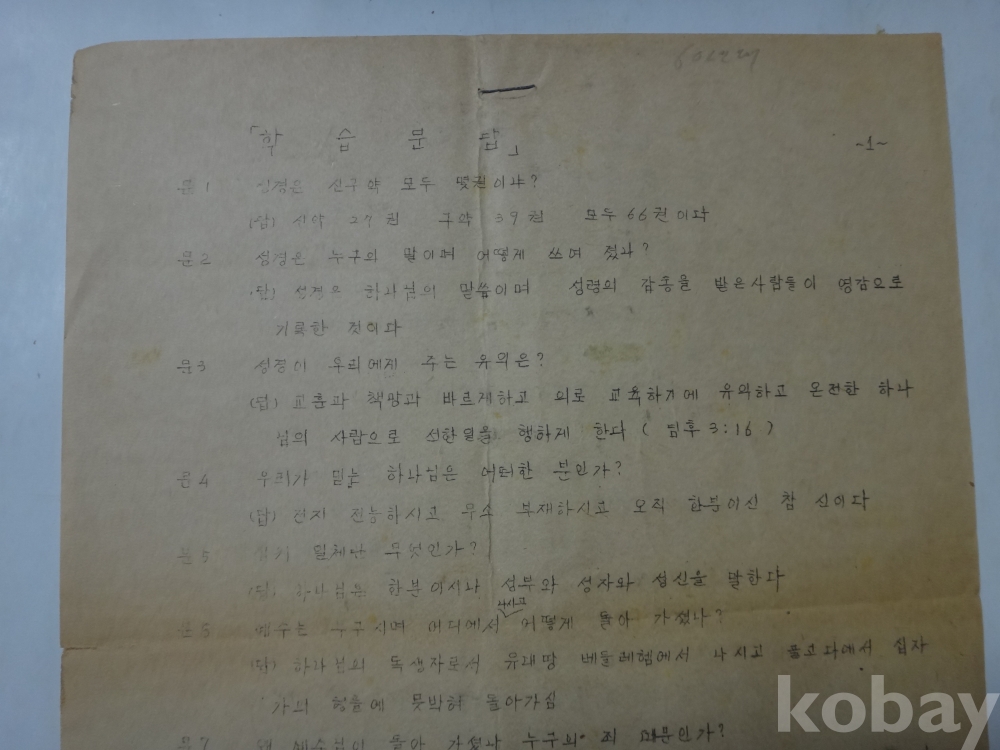 「학 습 문 답」 ~1~
문1 성경은 신구약 모두 몇권이냐?
(답) 신약 27권 구약 39권 모두 66권이다
문2 성경은 누구의 말이며 어떻게 쓰여 졌나?
(답) 성경은 하나님의 말씀이며 성령의 감동을 받은사람들이 영감으로
기록한 것이다
문3 성경이 우리에게 주는 유익은?
(답) 교훈과 책망과 바르게하고 의로 교육하기에 유익하고 온전한 하나
님의 사람으로 선한일을 행하게 한다 ( 딤후 3:16 )
문4 우리가 믿는 하나님은 어떠한 분인가?
(답) 전지 전능하시고 무소 부재하시고 오직 한분이신 참 신이다
문5 일체란 무엇인가?
(답) 하나님은 한분이시나 성부와 성자와 성신을 말한다
나시고
문6 예수는 누구시며 어디에서 어떻게 돌아 가셨나?
(답) 하나님의 독생자로서 유대땅 베들레헴에서 나시고 골고다에서 십자
가의 형틀에 못박혀 돌아가심
문7 왜 예수님이 돌아 가셨나 누구의 죄 때문인가?
kobay